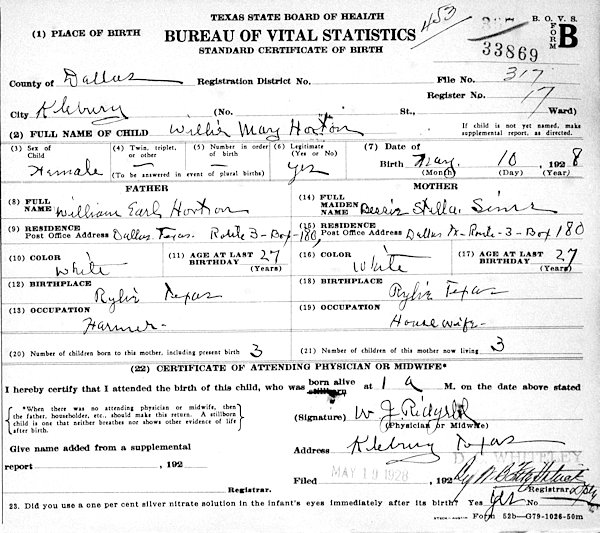 TEXAS STATE BOARD OF HEALTH
(1) PLACE OF BIRTH BUREAU OF VITAL STATISTICS 453 B. O. V. S. FORM B
STANDARD CERTIFICATE OF BIRTH 33869
County of Dallas Registration District No. File No. 317
Register No. 17
City Klebury (No. St., Ward)
(2) FULL NAME OF CHILD Willie May Horton If child is not yet named, make supplemental report, as directed.
(3) Sex of Child Female (4) Twin, triplet, or other — (5) Number in order of birth — (6) Legitimate (Yes or No) Yes (7) Date of Birth May 10 1928
(To be answered in event of plural births) (Month) (Day) (Year)
FATHER MOTHER
(8) FULL NAME William Earl Horton (14) FULL MAIDEN NAME Bessie Stella Sims
(9) RESIDENCE Post Office Address Dallas Texas. Route 3-Box-180, (15) RESIDENCE Post Office Address Dallas Tx-Route-3-Box 180
(10) COLOR White (11) AGE AT LAST BIRTHDAY 27 (Years) (16) COLOR White (17) AGE AT LAST BIRTHDAY 27 (Years)
(12) BIRTHPLACE Rylie Texas (18) BIRTHPLACE Rylie Texas
(13) OCCUPATION Farmer- (19) OCCUPATION Housewife-
(20) Number of children born to this mother, including present birth 3 (21) Number of children of this mother now living 3
(22) CERTIFICATE OF ATTENDING PHYSICIAN OR MIDWIFE*
I hereby certify that I attended the birth of this child, who was born alive at 1 a M. on the date above stated
*When there was no attending physician or midwife, then the father, householder, etc., should make this return. A stillborn child is one that neither breathes nor shows other evidence of life after birth.
(Signature) W J
(Physician or Midwife)
Give name added from a supplemental Address Klebury Texas
report , 192 D. WHITELEY
MAY 19 1928
Filed , 192
Registrar. Registrar
23. Did you use a one per cent silver nitrate solution in the infant's eyes immediately after its birth? Yes Yes No
Form 52b—G79-1026-50m